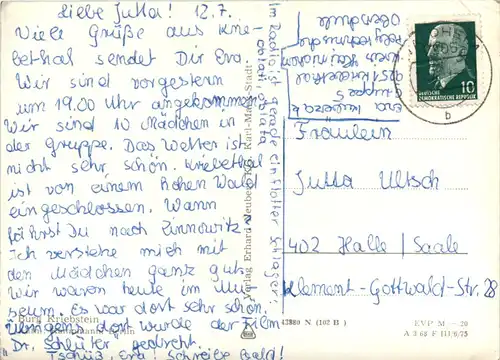 Liebe Jutta! 12.7.
Viele Grüße aus Krie-
bethal sendet Dir Eva
Wir sind vorgestern
um 19.00 Uhr angekommen
Wir sind 10 Mädchen in
der Gruppe. Das Wetter ist
nicht sehr schön. Kriebethal
ist von einem hohen Wald
eingeschlossen. Wann
fährst Du nach Zinnowitz
Ich verstehe mich mit
den Mädchen ganz gut.
Wir waren heute im Mu-
seum. Es war dort sehr schön.
Übrigens dort wurde der Film
Dr. Schlüter gedreht.
Tschüß, Eva! Schreibe bald!
Im Radio ist gerade ein flotter Schlager
Oberschule
Polytechnische
Gruppe 5
Burg Kriebstein
Verlag Erhard Neubert KG, Karl-Marx-Stadt
43880 N (102 B)
DEUTSCHE
DEMOKRATISCHE REPUBLIK
10
b
Fräulein
Jutta Ultsch
402 Halle/Saale
Klement-Gottwald-Str. 28
EVP M —.20
A 3 68 F III/6/75